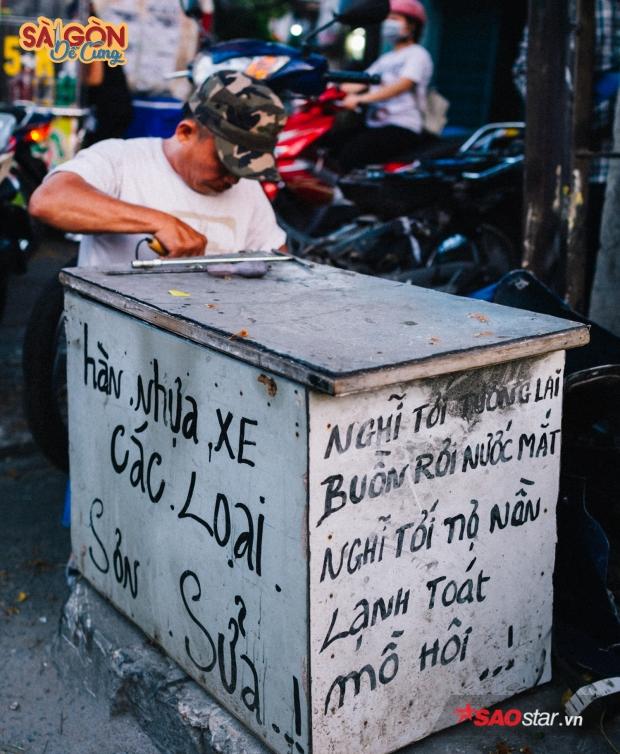 SÀI GÒN
Dễ Cưng
hàn nhựa XE
CÁC LOẠI
SƠN SỬA ...!
NGHĨ TỚI TƯƠNG LAI
BUỒN RƠI NƯỚC MẮT
NGHĨ TỚI NỢ NẦN
LẠNH TOÁT
MỒ HÔI...!
SAOstar.vn